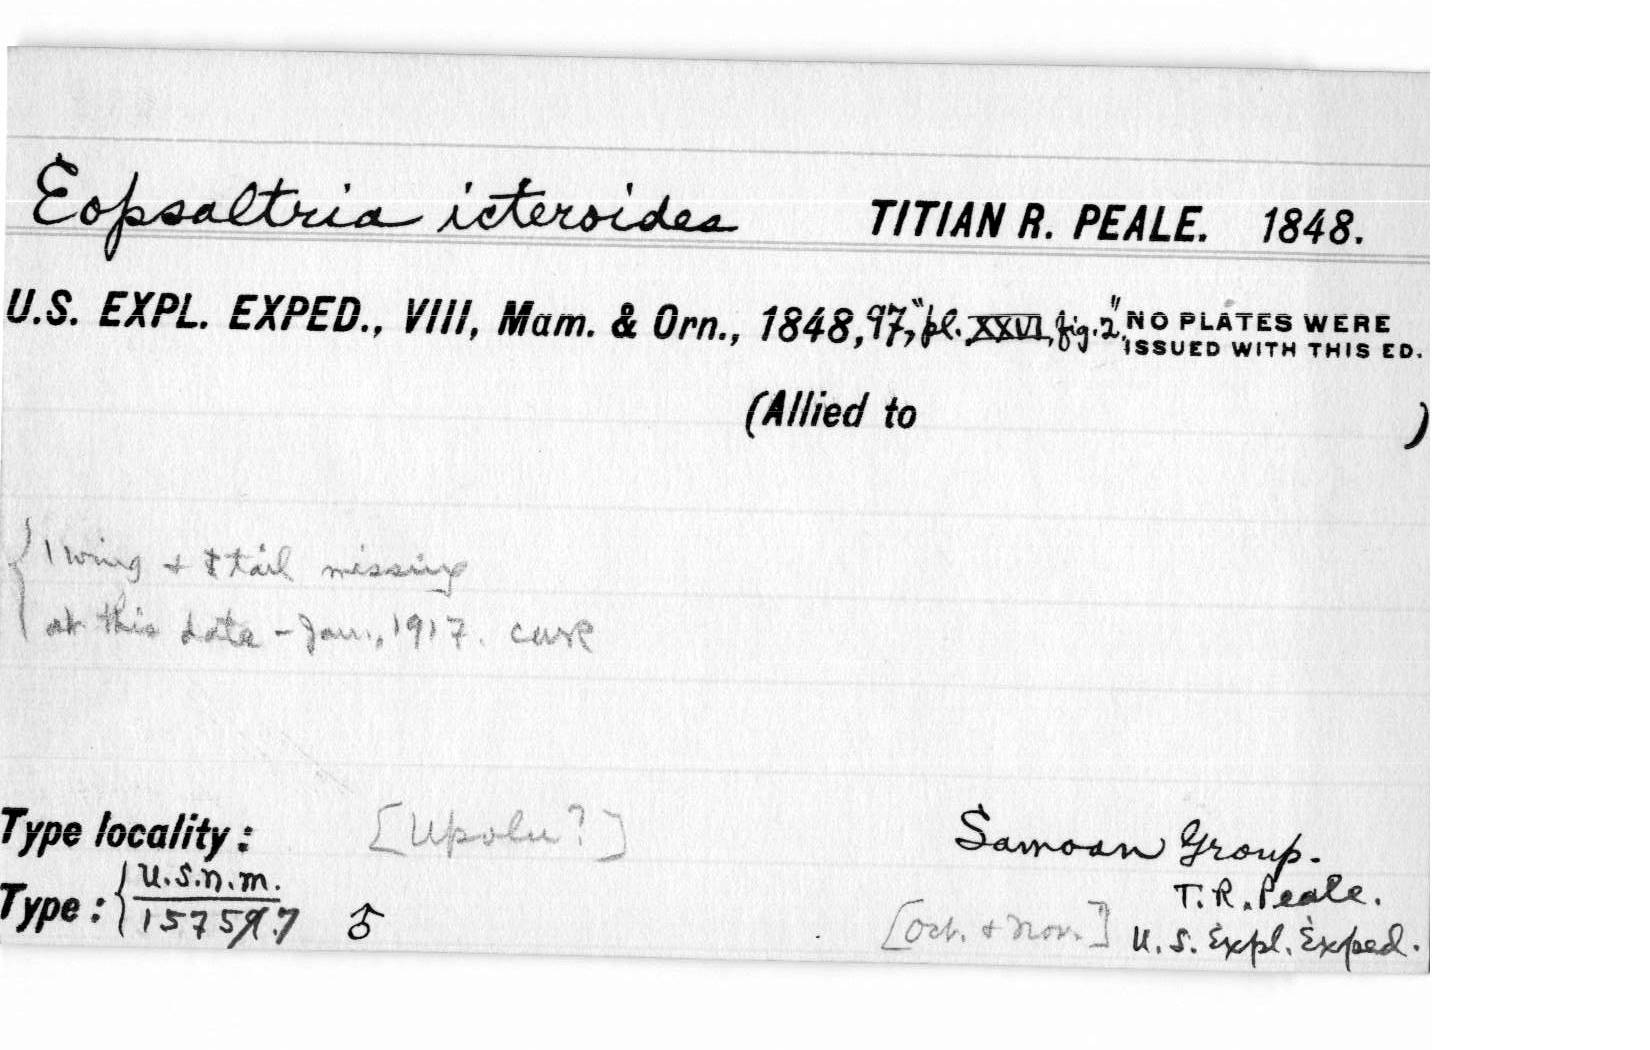 Eopsaltria icteroides TITIAN R. PEALE. 1848.
U.S. EXPL. EXPED., VIII, Mam. & Orn., 1848, 97, "pl. XXVI, fig. 2", NO PLATES WERE
ISSUED WITH THIS ED.
(Allied to )
1 wing + tail missing
at this date - Jan., 1917.
Type locality: [Upolu?] Samoan Group.
Type: U.S.N.M. T. R. Peale.
♂ [Oct. + Nov.] U. S. Expl. Exped.